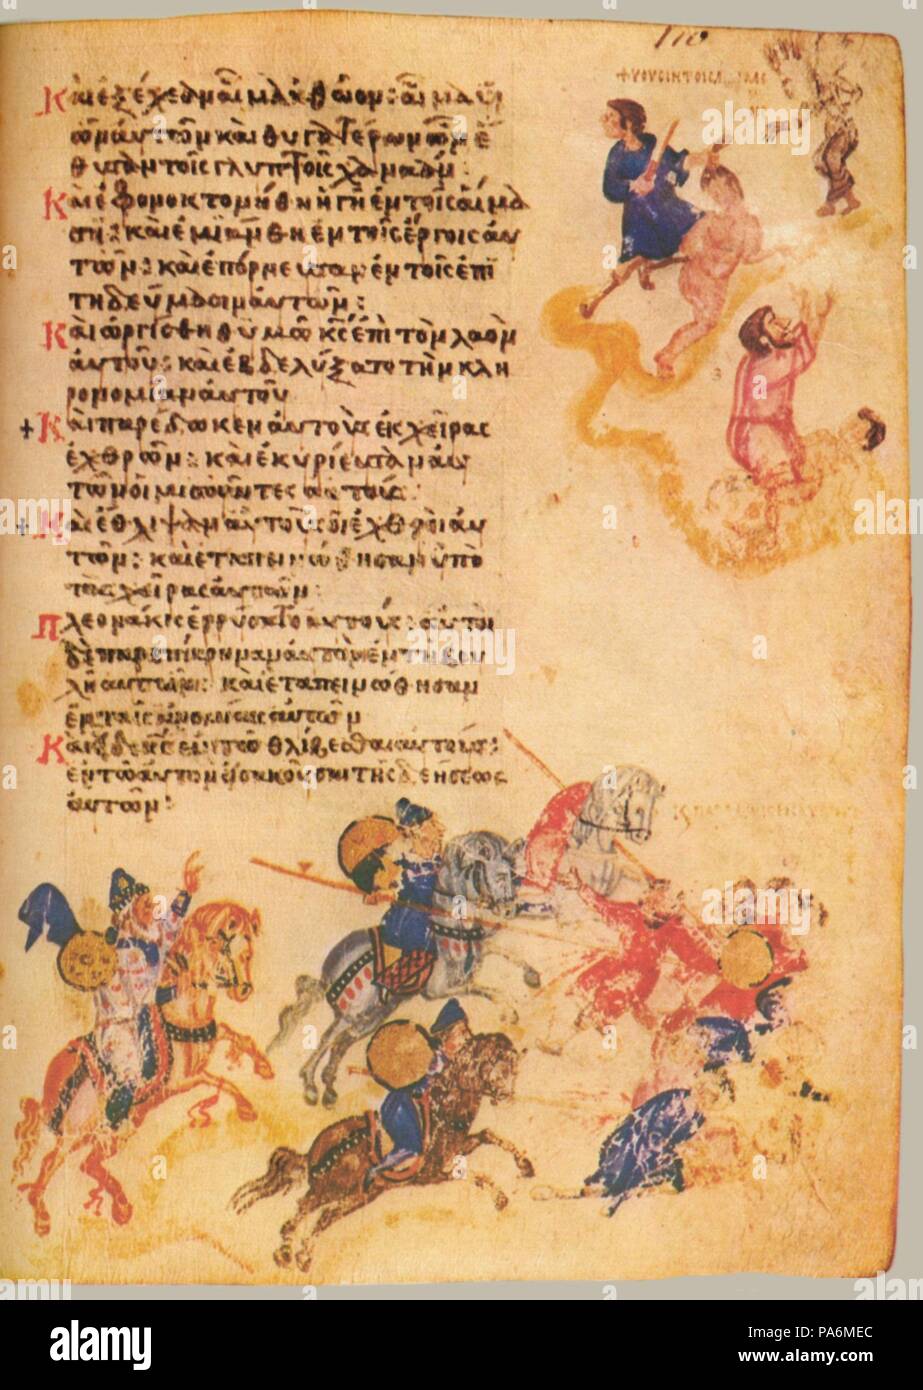 110
Καὶ ἐξέχεον αἷμα ἀθῶον: αἷμα υἱ
ῶν αὐτῶν καὶ θυγατέρων ὧν ἔ
θυσαν τοῖς γλυπτοῖς χαναάν:
Καὶ ἐφονοκτονήθη ἡ γῆ ἐν τοῖς αἵμα
σιν: καὶ ἐμιάνθη ἐν τοῖς ἔργοις αὐ
τῶν: καὶ ἐπόρνευσαν ἐν τοῖς ἐπι
τηδεύμασιν αὐτῶν:
Καὶ ὠργίσθη θυμῶ κς ἐπὶ τὸν λαὸν
αὐτοῦ: καὶ ἐβδελύξατο τὴν κλη
ρονομίαν αὐτοῦ
Καὶ παρέδωκεν αὐτοὺς εἰς χεῖρας
ἐχθρῶν: καὶ ἐκυρίευσαν αὐ
τῶν οἱ μισοῦντες αὐτούς:
Καὶ ἔθλιψαν αὐτοὺς οἱ ἐχθροὶ αὐ
τῶν: καὶ ἐταπεινώθησαν ὑπὸ
τὰς χεῖρας αὐτῶν:
Πλεονάκις ἐρρύσατο αὐτούς: αὐτοὶ
δὲ παρεπίκραναν αὐτὸν ἐν τῆ βου
λῆ αὐτῶν: καὶ ἐταπεινώθησαν
ἐν ταῖς ἀνομίαις αὐτῶν
Καὶ εἶδεν ἐν τῶ θλίβεσθαι αὐτούς:
ἐν τῶ αὐτὸν εἰσακοῦσαι τῆς δεήσεως
αὐτῶν:
alamy
Image ID: PA6MEC
www.alamy.com